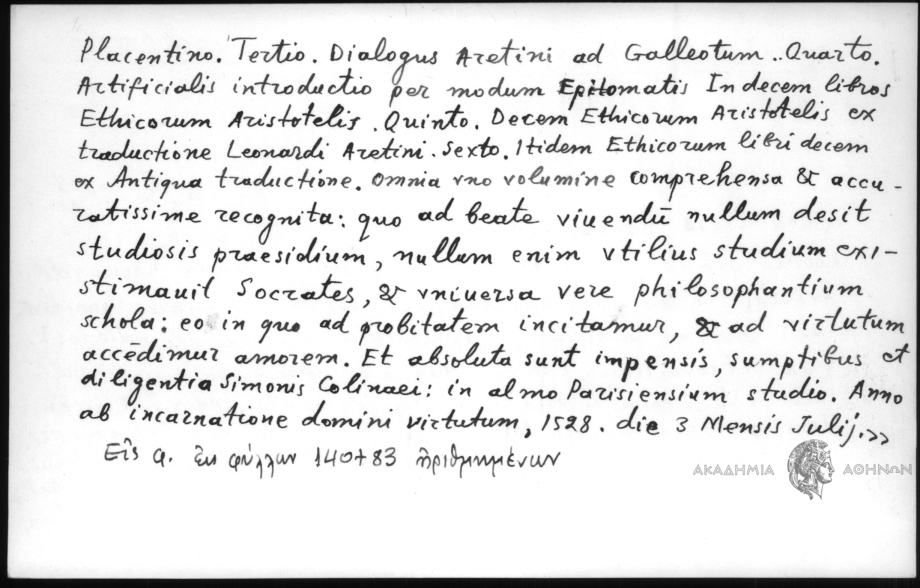 Placentino. Tertio. Dialogus Aretini ad Galleotum.. Quarto.
Artificialis introductio per modum Epitomatis In decem libros
Ethicorum Aristotelis. Quinto. Decem Ethicorum Aristotelis ex
traductione Leonardi Aretini. Sexto. Itidem Ethicorum libri decem
ex Antiqua traductione. Omnia vno volumine comprehensa & accu-
ratissime recognita: quo ad beate viuendū nullum desit
studiosis praesidium, nullum enim vtilius studium exi-
stimauit Socrates, & vniuersa vere philosophantium
schola; eo in quo ad probitatem incitamur, & ad virtutum
accēdimur amorem. Et absoluta sunt impensis, sumptibus et
diligentia Simonis Colinaei: in almo Parisiensium studio. Anno
ab incarnatione domini virtutum, 1528. die 3 Mensis Julij.>>
Εἰς φ. ἐκ φύλλων 140+83 ἠριθμημένων
ΑΚΑΔΗΜΙΑ ΑΘΗΝΩΝ